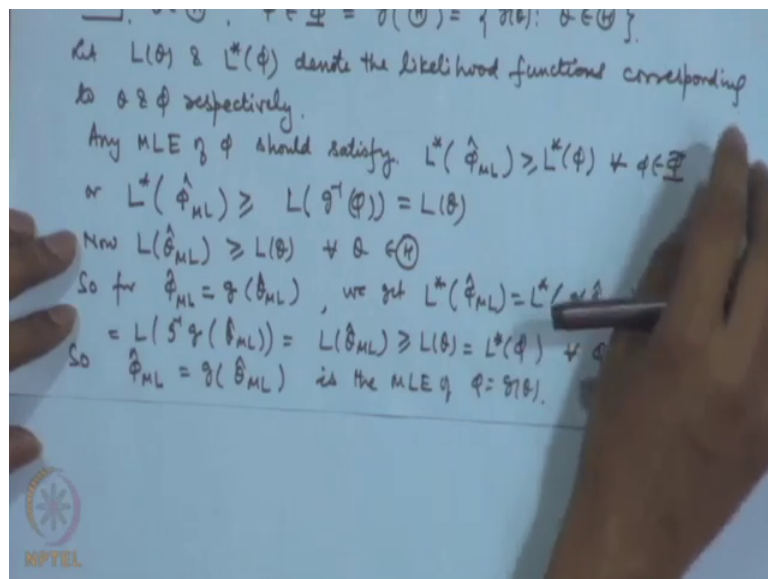 θ ∈ Ⓗ, φ ∈ Φ = g(Ⓗ) = { g(θ): θ ∈ Ⓗ }.
Let L(θ) & L*(φ) denote the likelihood functions corresponding
to θ & φ respectively.
Any MLE of φ should satisfy. L*(φ̂_ML) ≥ L*(φ) ∀ φ ∈ Φ
or L*(φ̂_ML) ≥ L(g⁻¹(φ)) = L(θ)
Now L(θ̂_ML) ≥ L(θ) ∀ θ ∈ Ⓗ
So for φ̂_ML = g(θ̂_ML), we get L*(φ̂_ML) = L*(
= L(g⁻¹ g(θ̂_ML)) = L(θ̂_ML) ≥ L(θ) = L*(φ) ∀ φ
So φ̂_ML = g(θ̂_ML) is the MLE of φ = g(θ).
NPTEL